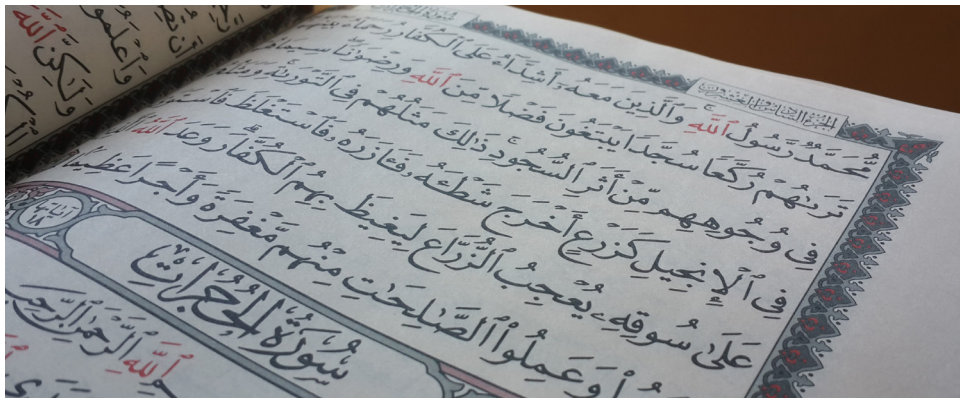 الجزء السادس والعشرون
مُّحَمَّدٌ رَّسُولُ ٱللَّهِ وَٱلَّذِينَ مَعَهُۥٓ أَشِدَّآءُ عَلَى ٱلْكُفَّارِ رُحَمَآءُ
تَرَىٰهُمْ رُكَّعًا سُجَّدًا يَبْتَغُونَ فَضْلًا مِّنَ ٱللَّهِ وَرِضْوَٰنًا
فِي وُجُوهِهِم مِّنْ أَثَرِ ٱلسُّجُودِ ذَٰلِكَ مَثَلُهُمْ فِي ٱلتَّوْرَىٰةِ
فِي ٱلْإِنجِيلِ كَزَرْعٍ أَخْرَجَ شَطْـَٔهُۥ فَـَٔازَرَهُۥ فَٱسْتَغْلَظَ
عَلَىٰ سُوقِهِۦ يُعْجِبُ ٱلزُّرَّاعَ لِيَغِيظَ بِهِمُ ٱلْكُفَّارَ وَعَدَ ٱللَّهُ
وَعَمِلُوا۟ ٱلصَّٰلِحَٰتِ مِنْهُم مَّغْفِرَةً وَأَجْرًا عَظِيمًا
سُورَةُ الحُجُرَاتِ
ٱللَّهِ ٱلرَّحْمَٰنِ ٱلرَّحِيمِ
وَلَٰكِنَّ ٱللَّهَ